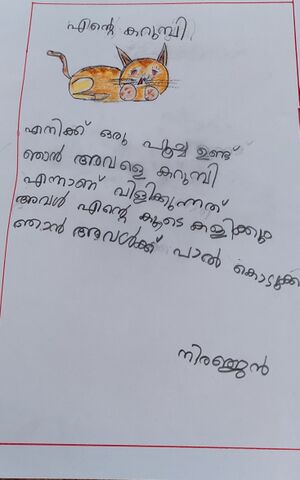 എന്റെ കറുമ്പി
എനിക്ക് ഒരു പൂച്ച ഉണ്ട്
ഞാൻ അവളെ കറുമ്പി
എന്നാണ് വിളിക്കുന്നത്
അവൾ എന്റെ കൂടെ കളിക്കും
ഞാൻ അവൾക്ക് പാൽ
നിരഞ്ജൻ